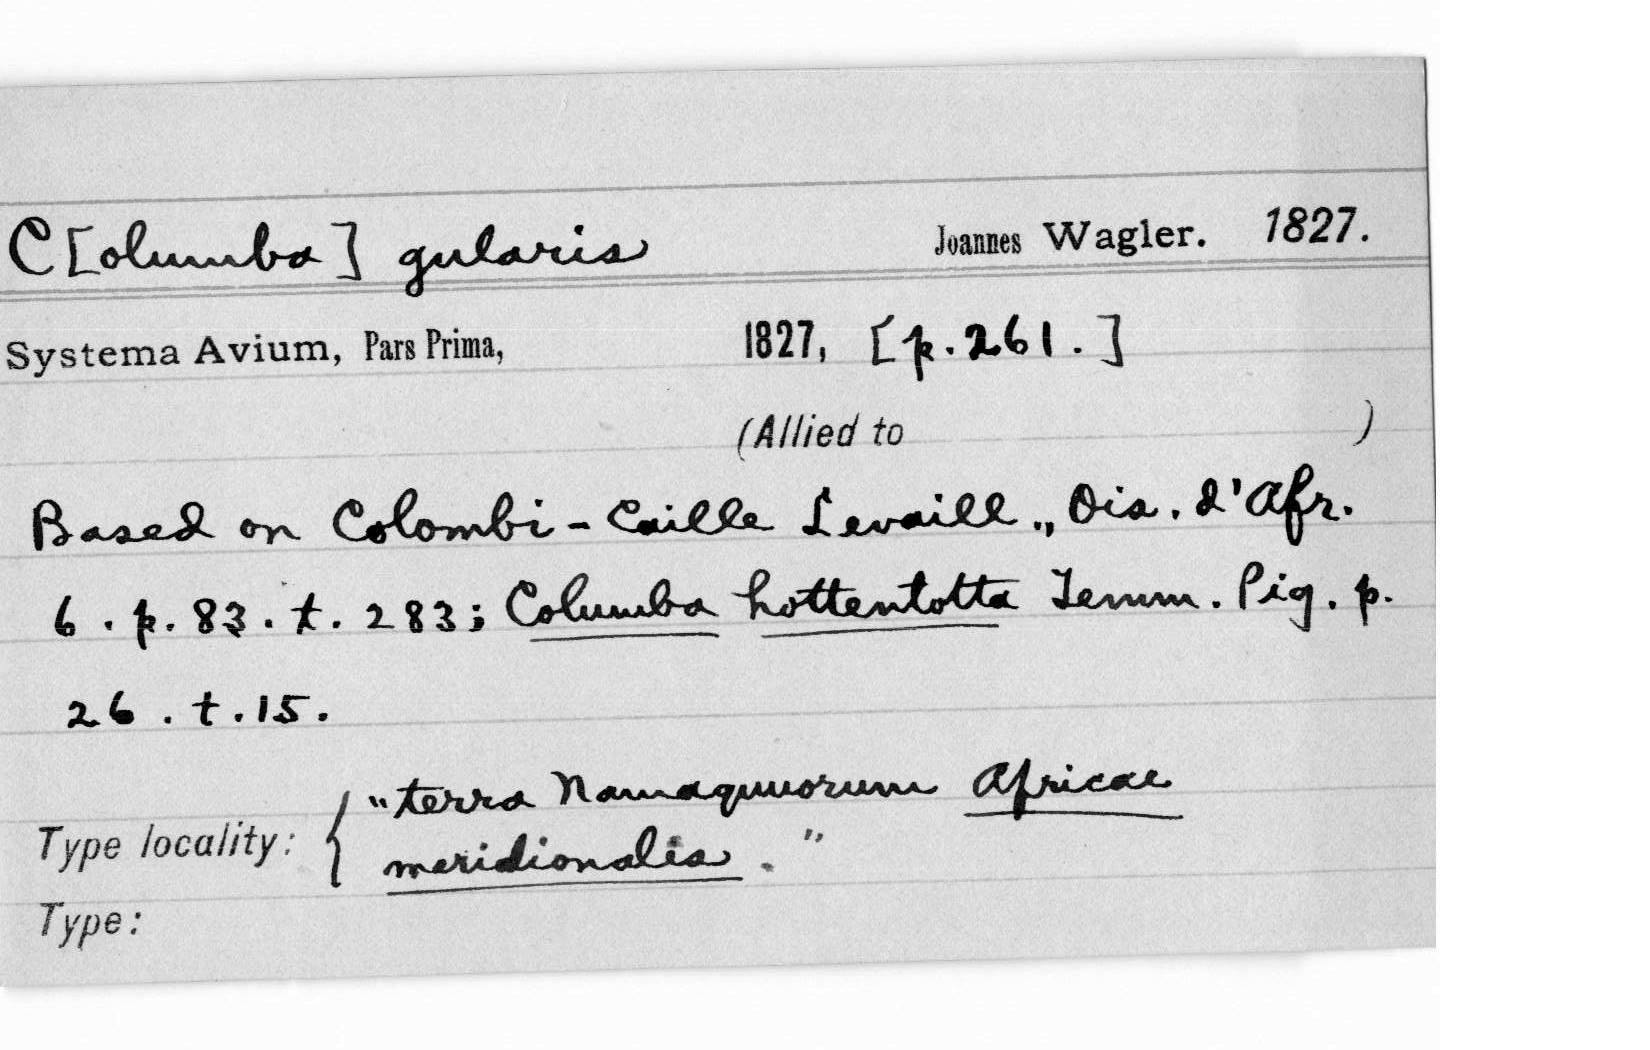 C[olumba] gularis Joannes Wagler. 1827.
Systema Avium, Pars Prima, 1827, [p. 261.]
(Allied to )
Based on Colombi-Caille Levaill., Ois. d'Afr.
6. p. 83. t. 283; Columba hottentotta Temm. Pig. p.
26. t. 15.
Type locality: { "terra Namaquuorum Africae
meridionalis."
Type: